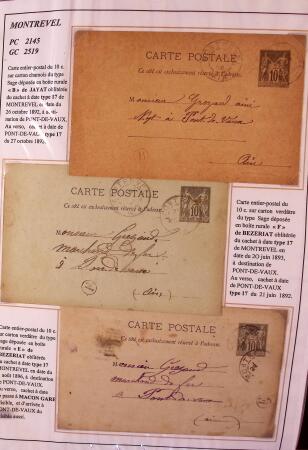 MONTREVEL
PC 2145
GC 2519
Carte entier-postal du 10 c.
sur carton chamois du type
Sage déposée en boîte rurale
« B » de JAYAT oblitérée
du cachet à date type 17 de
MONTREVEL en date du
26 octobre 1892, à destination de PONT-DE-VAUX.
Au verso, cachet à date de
PONT-DE-VAUX type 17
du 27 octobre 1892.
CARTE POSTALE
Ce côté est exclusivement réservé à l'adresse.
10
Monsieur
à Pont de Vaux
Ain
CARTE POSTALE
Ce côté est exclusivement réservé à l'adresse.
10
Monsieur
marchand
à Pont de Vaux
(Ain)
Carte entier-postal du
c. sur carton verdâtre du
type Sage déposée en
boîte rurale « F »
de BEZERIAT oblitérée
du cachet à date type 17
de MONTREVEL en
date du 20 juin 1893,
à destination de
PONT-DE-VAUX. Au
verso, cachet à date
type 17 du 21 juin 1892.
Carte entier-postal du 10 c.
sur carton verdâtre du type
Sage déposée en boîte
rurale « E » de
BEZERIAT oblitérée du
cachet à date type
de MONTREVEL du
août 1896, à destination
de PONT-DE-VAUX.
Au verso, cachet à date
de passe à MACON GARE
visible, et d'arrivée à
PONT-DE-VAUX du
visible aussi.
CARTE POSTALE
Ce côté est exclusivement réservé à l'adresse.
Monsieur
marchand de
à Pont de Vaux
(Ain)